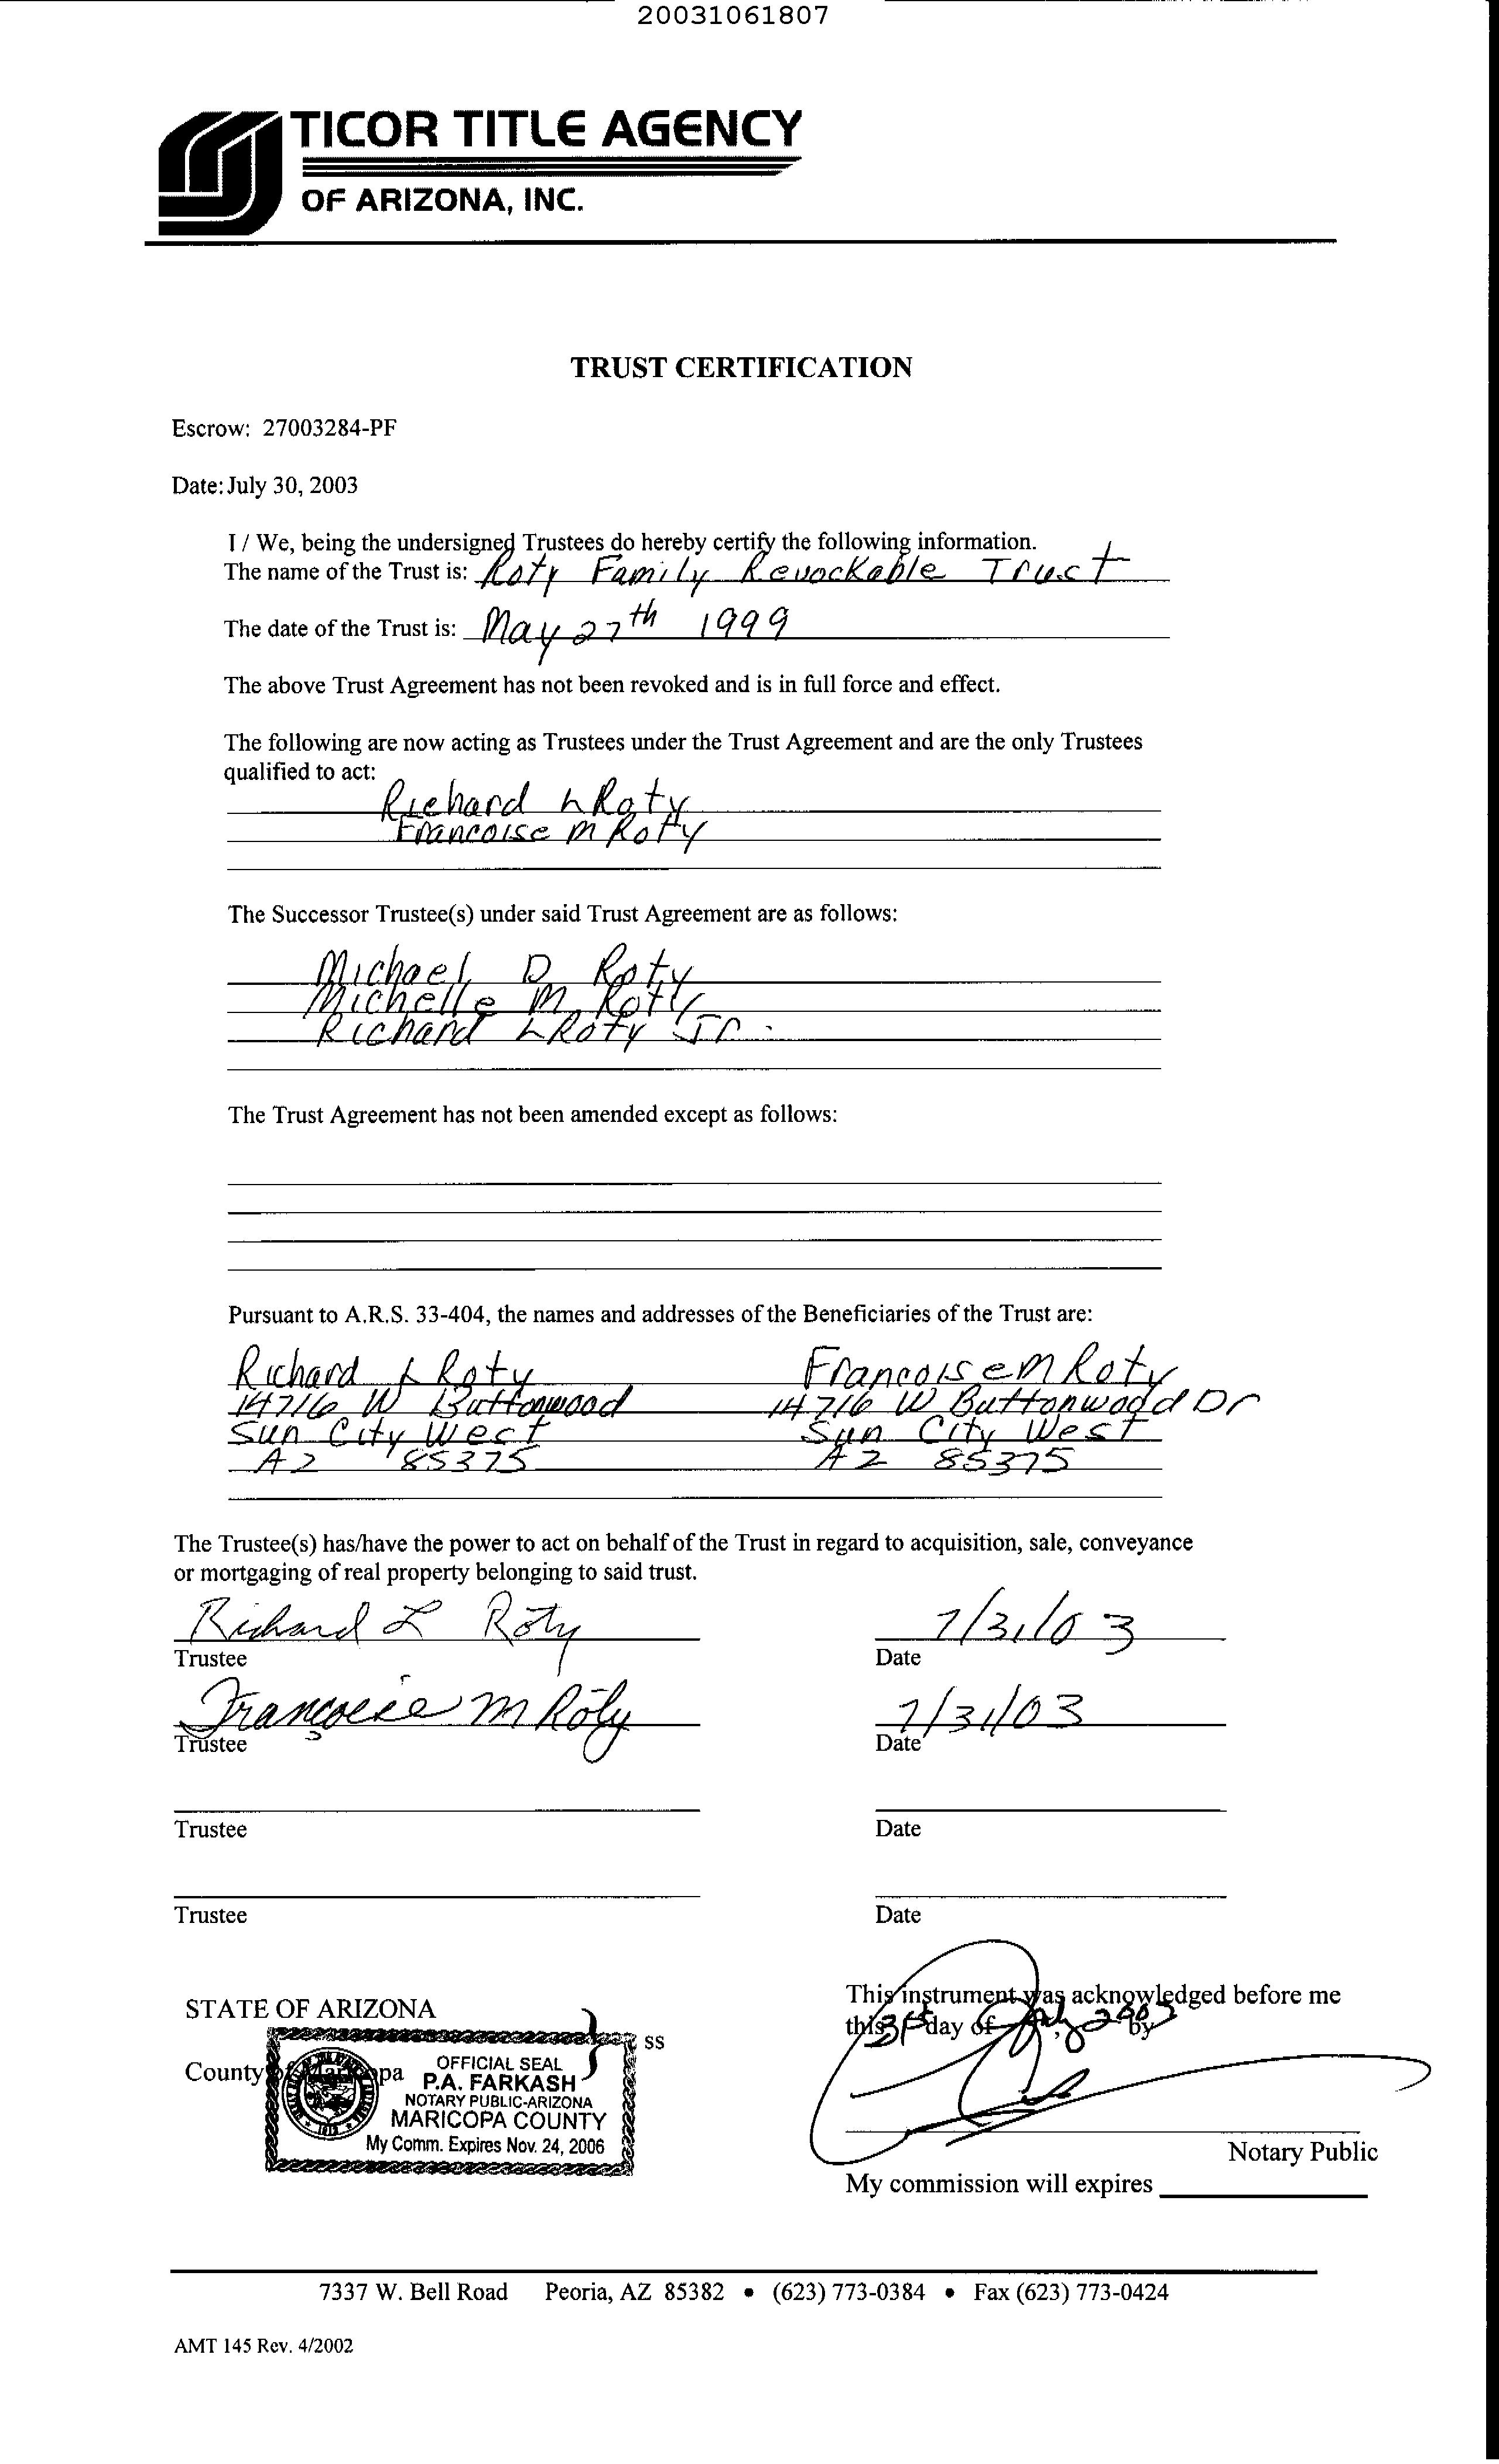 20031061807
TICOR TITLE AGENCY
OF ARIZONA, INC.
TRUST CERTIFICATION
Escrow: 27003284-PF
Date: July 30, 2003
I / We, being the undersigned Trustees do hereby certify the following information.
The name of the Trust is: Roty Family Revockable Trust
The date of the Trust is: May 27th 1999
The above Trust Agreement has not been revoked and is in full force and effect.
The following are now acting as Trustees under the Trust Agreement and are the only Trustees
qualified to act:
Richard L Roty
Francoise M Roty
The Successor Trustee(s) under said Trust Agreement are as follows:
Michael D Roty
Michelle M. Roty
Richard L Roty Jr.
The Trust Agreement has not been amended except as follows:
Pursuant to A.R.S. 33-404, the names and addresses of the Beneficiaries of the Trust are:
Richard L Roty Francoise M Roty
14716 W Buttonwood 14716 W Buttonwood Dr
Sun City West Sun City West
AZ 85375 AZ 85375
The Trustee(s) has/have the power to act on behalf of the Trust in regard to acquisition, sale, conveyance
or mortgaging of real property belonging to said trust.
Richard L Roty 7/31/03
Trustee Date
Françoise M Roty 7/31/03
Trustee Date
Trustee Date
Trustee Date
STATE OF ARIZONA This instrument was acknowledged before me
ss this 31st day of July, 2003 by
County of Maricopa
OFFICIAL SEAL
P.A. FARKASH
NOTARY PUBLIC-ARIZONA
MARICOPA COUNTY
My Comm. Expires Nov. 24, 2006
Notary Public
My commission will expires
7337 W. Bell Road Peoria, AZ 85382 • (623) 773-0384 • Fax (623) 773-0424
AMT 145 Rev. 4/2002